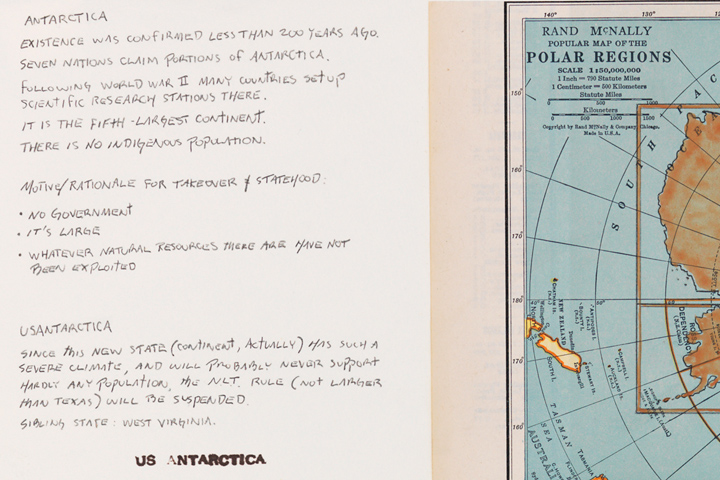 ANTARCTICA
EXISTENCE WAS CONFIRMED LESS THAN 200 YEARS AGO.
SEVEN NATIONS CLAIM PORTIONS OF ANTARCTICA.
FOLLOWING WORLD WAR II MANY COUNTRIES SET UP
SCIENTIFIC RESEARCH STATIONS THERE.
IT IS THE FIFTH-LARGEST CONTINENT.
THERE IS NO INDIGENOUS POPULATION.
MOTIVE/RATIONALE FOR TAKEOVER & STATEHOOD:
• NO GOVERNMENT
• IT'S LARGE
• WHATEVER NATURAL RESOURCES THERE ARE HAVE NOT
BEEN EXPLOITED
USANTARCTICA
SINCE THIS NEW STATE (CONTINENT, ACTUALLY) HAS SUCH A
SEVERE CLIMATE, AND WILL PROBABLY NEVER SUPPORT
HARDLY ANY POPULATION, THE N.L.T. RULE (NOT LARGER
THAN TEXAS) WILL BE SUSPENDED.
SIBLING STATE: WEST VIRGINIA.
US ANTARCTICA
140°
130°
RAND McNALLY
POPULAR MAP OF THE
POLAR REGIONS
SCALE 1:50,000,000
1 Inch = 790 Statute Miles
1 Centimeter = 500 Kilometers
Statute Miles
0 500 1000
Kilometers
0 500 1000 1500
Copyright by Rand McNally & Company, Chicago.
Made in U.S.A.
150°
160°
170°
180°
170°
160°
SOUTH PAC
NEW ZEALAND
SOUTH I.
STEWART IS.
DEPENDENCY
TASMAN
SEA
AUSTRALI
TASMANIA